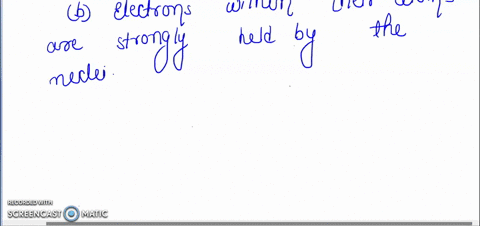 (b) Electrons within their atoms
are strongly held by the
neclei.
RECORDED WITH
SCREENCAST MATIC